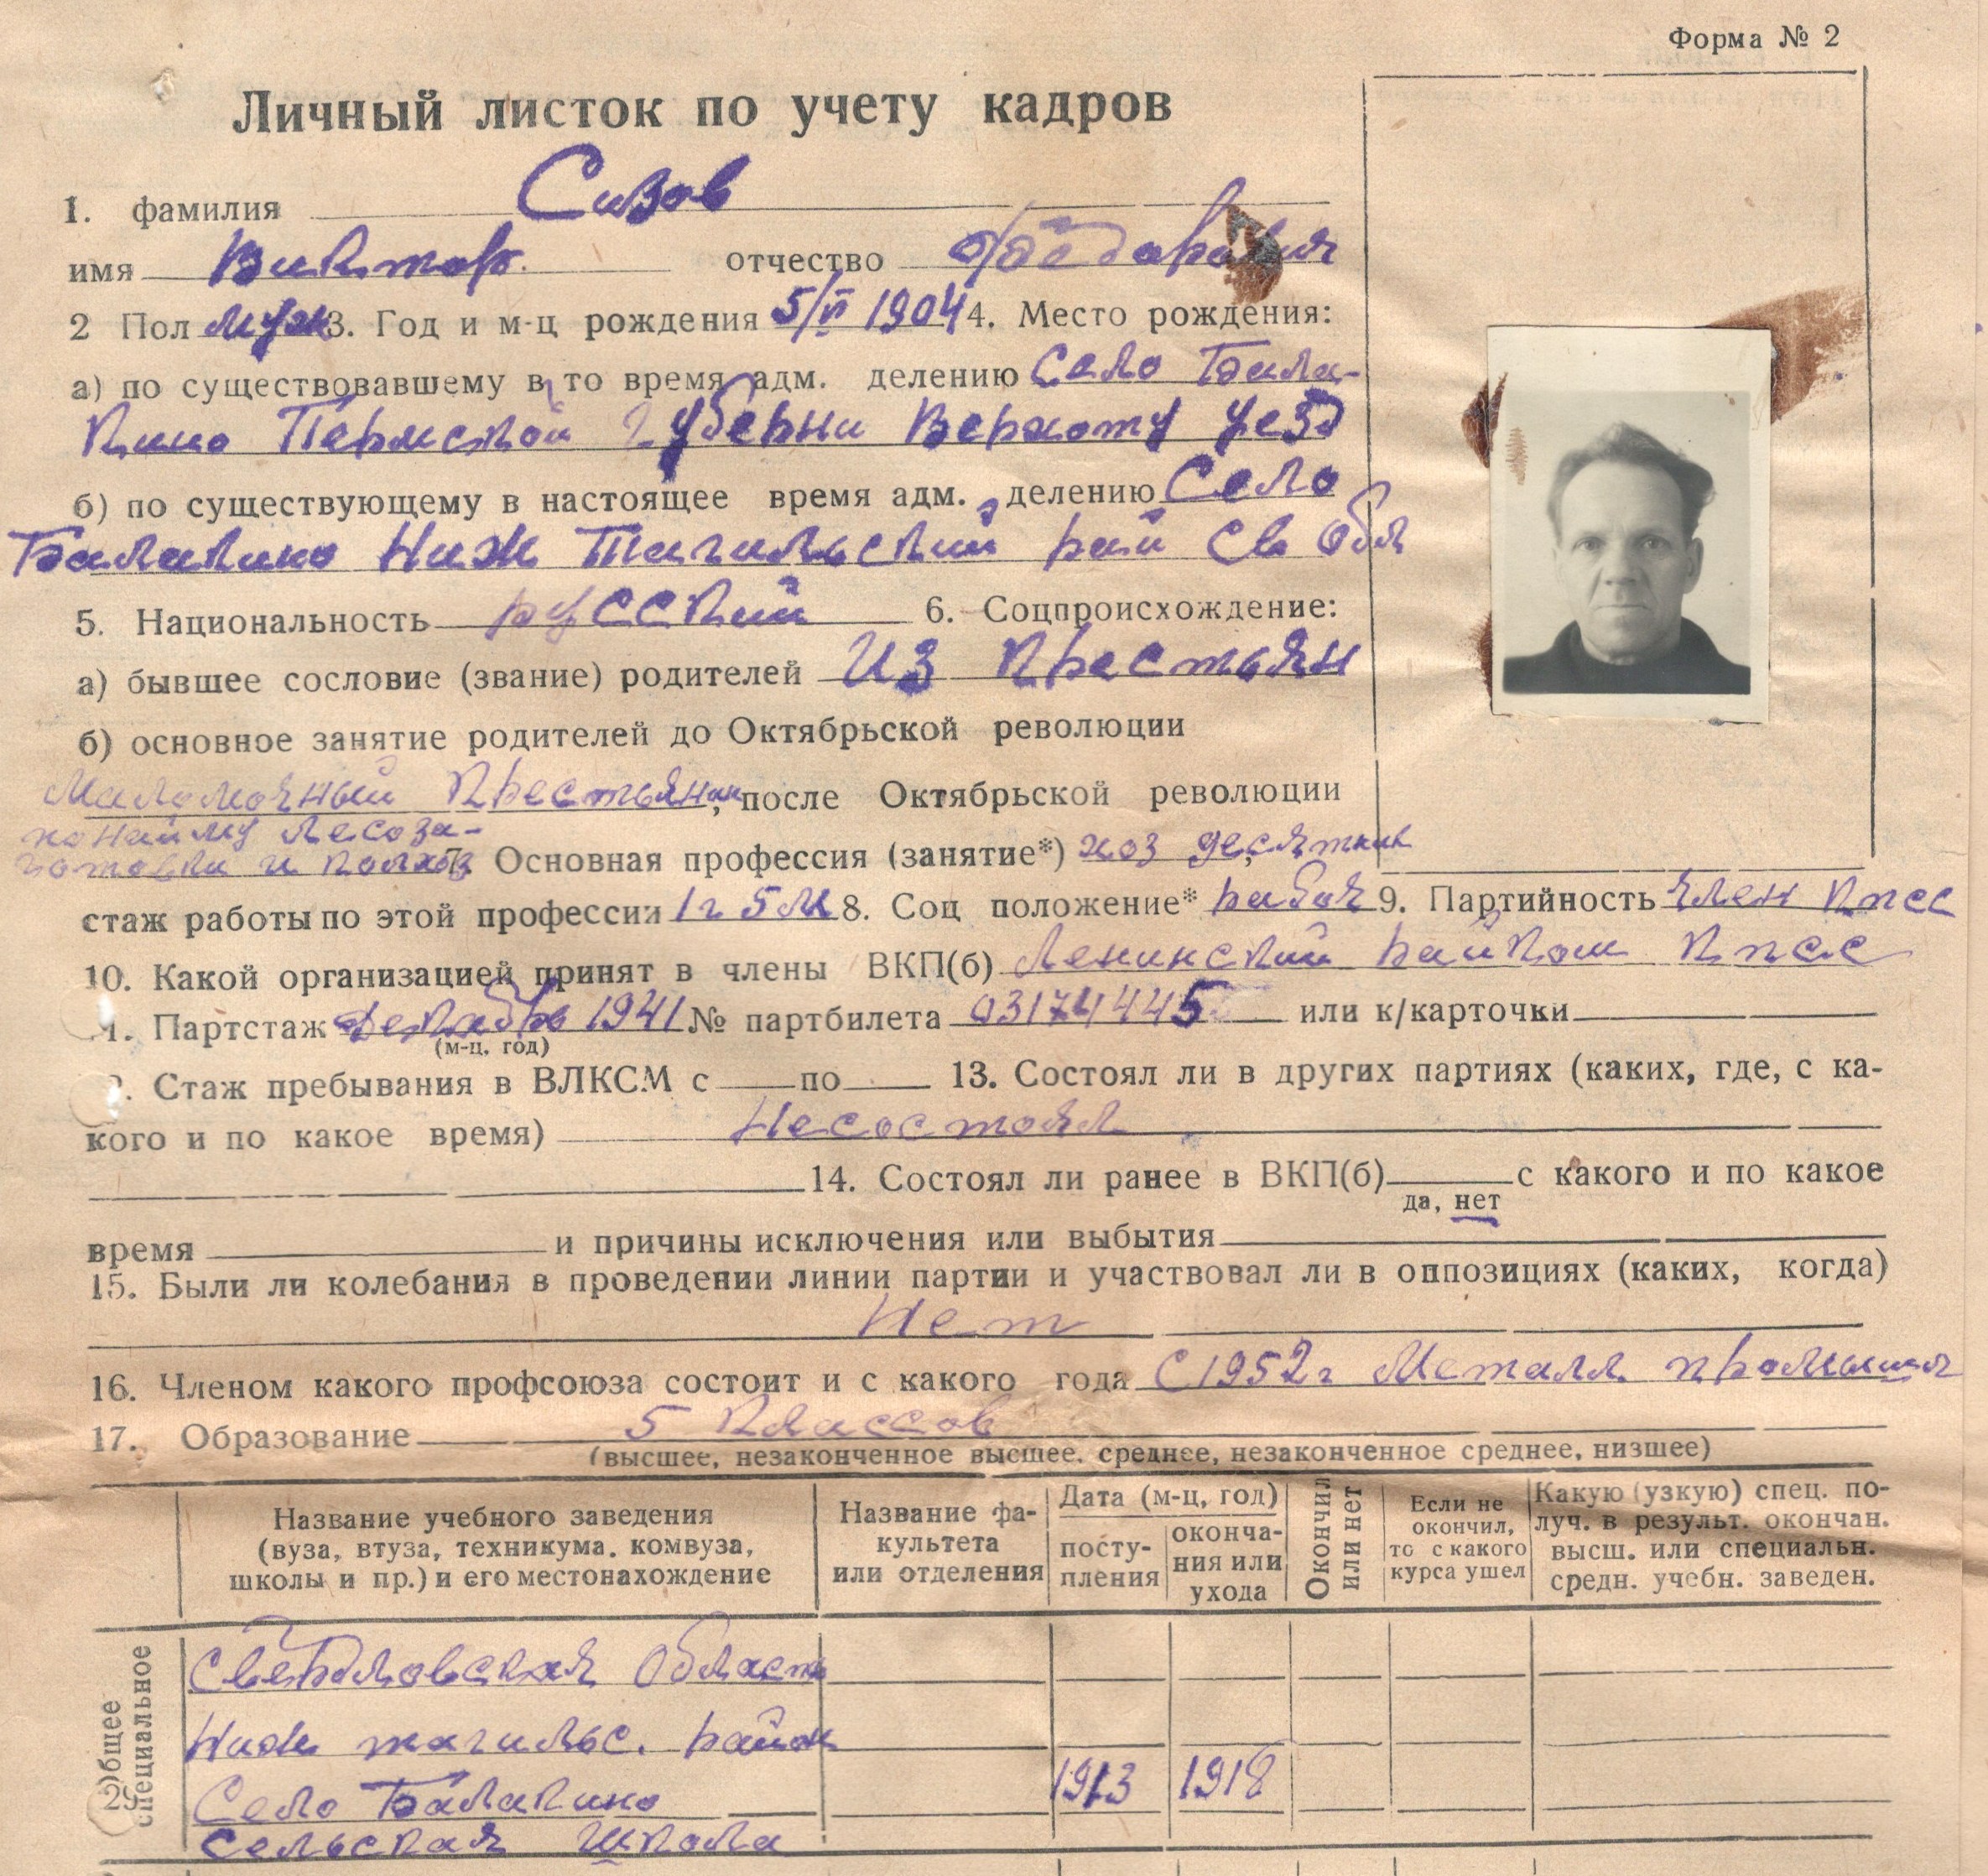 Форма № 2
Личный листок по учету кадров
1. фамилия Сизов
имя Виктор. отчество Фёдорович
2 Пол муж 3. Год и м-ц рождения 5/VI 1904 4. Место рождения:
а) по существовавшему в то время адм. делению Село Бала-
кино Пермской Губерни Верхоту уезд
б) по существующему в настоящее время адм. делению Село
Балакино Ниж Тагильский рай Св Обл
5. Национальность русский 6. Соцпроисхождение:
а) бывшее сословие (звание) родителей Из крестьян
б) основное занятие родителей до Октябрьской революции
Маломочный крестьянин, после Октябрьской революции
по найму лесоза-
готовки и колхоз 7. Основная профессия (занятие*) хоз десятник
стаж работы по этой профессии 1 г 5 м 8. Соц положение* рабоч 9. Партийность член кпсс
10. Какой организацией принят в члены ВКП(б) Ленинский райком кпсс
1. Партстаж декабрь 1941 № партбилета 03174445 или к/карточки
(м-ц, год)
. Стаж пребывания в ВЛКСМ с по 13. Состоял ли в других партиях (каких, где, с ка-
кого и по какое время) Несостоял
14. Состоял ли ранее в ВКП(б) с какого и по какое
да, нет
время и причины исключения или выбытия
15. Были ли колебания в проведении линии партии и участвовал ли в оппозициях (каких, когда)
Нет
16. Членом какого профсоюза состоит и с какого года С 1952 г Металл. промышл
17. Образование 5 классов
(высшее, незаконченное высшее, среднее, незаконченное среднее, низшее)
Название учебного заведения (вуза, втуза, техникума, комвуза, школы и пр.) и его местонахождение
Название фа-
культета
или отделения
Дата (м-ц, год)
посту-
пления
оконча-
ния или
ухода
Окончил
или нет
Если не
окончил,
то с какого
курса ушел
Какую (узкую) спец. по-
луч. в результ. окончан.
высш. или специальн.
средн. учебн. заведен.
Общее
специальное
Свердловская область
Ниж тагильс. район
Село Балакино 1913 1918
сельская школа